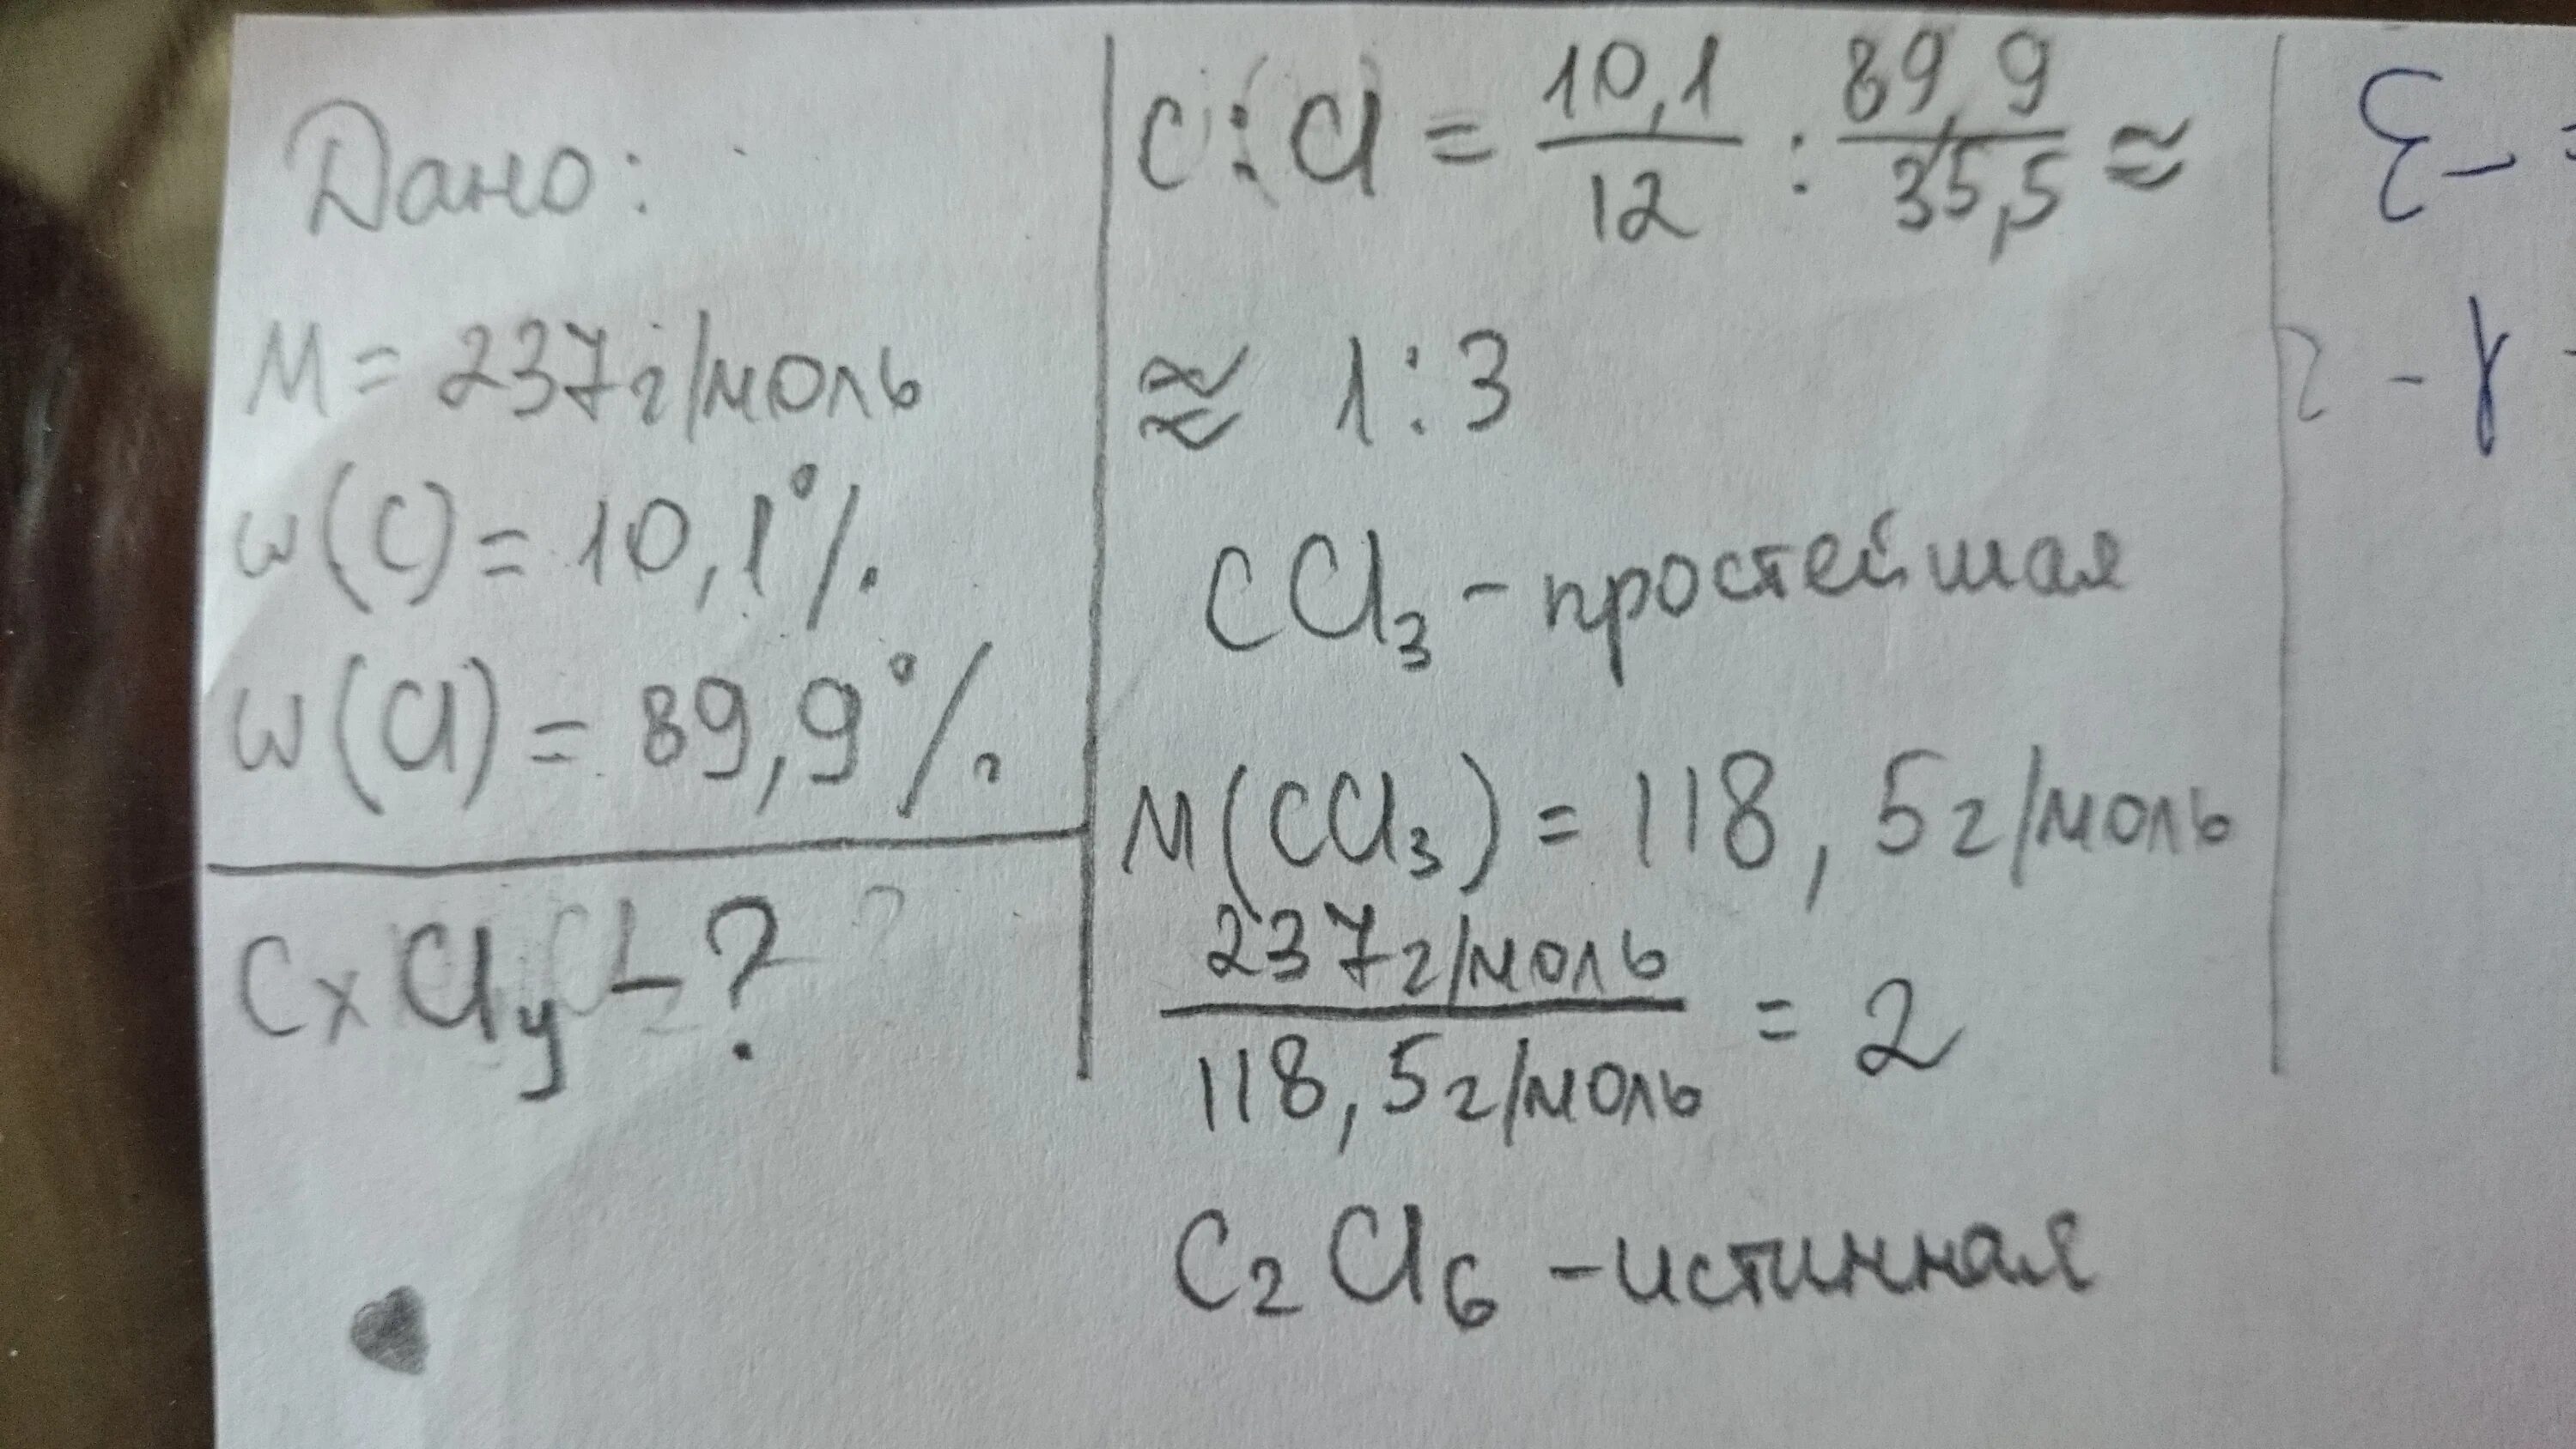 Дано:
M = 237 г/моль
w(C) = 10,1%.
w(Cl) = 89,9%.
CxCly - ?
C : Cl = 10,1/12 : 89,9/35,5 ≈
≈ 1:3
CCl₃ - простейшая
M(CCl₃) = 118,5 г/моль
237 г/моль / 118,5 г/моль = 2
C₂Cl₆ - истинная